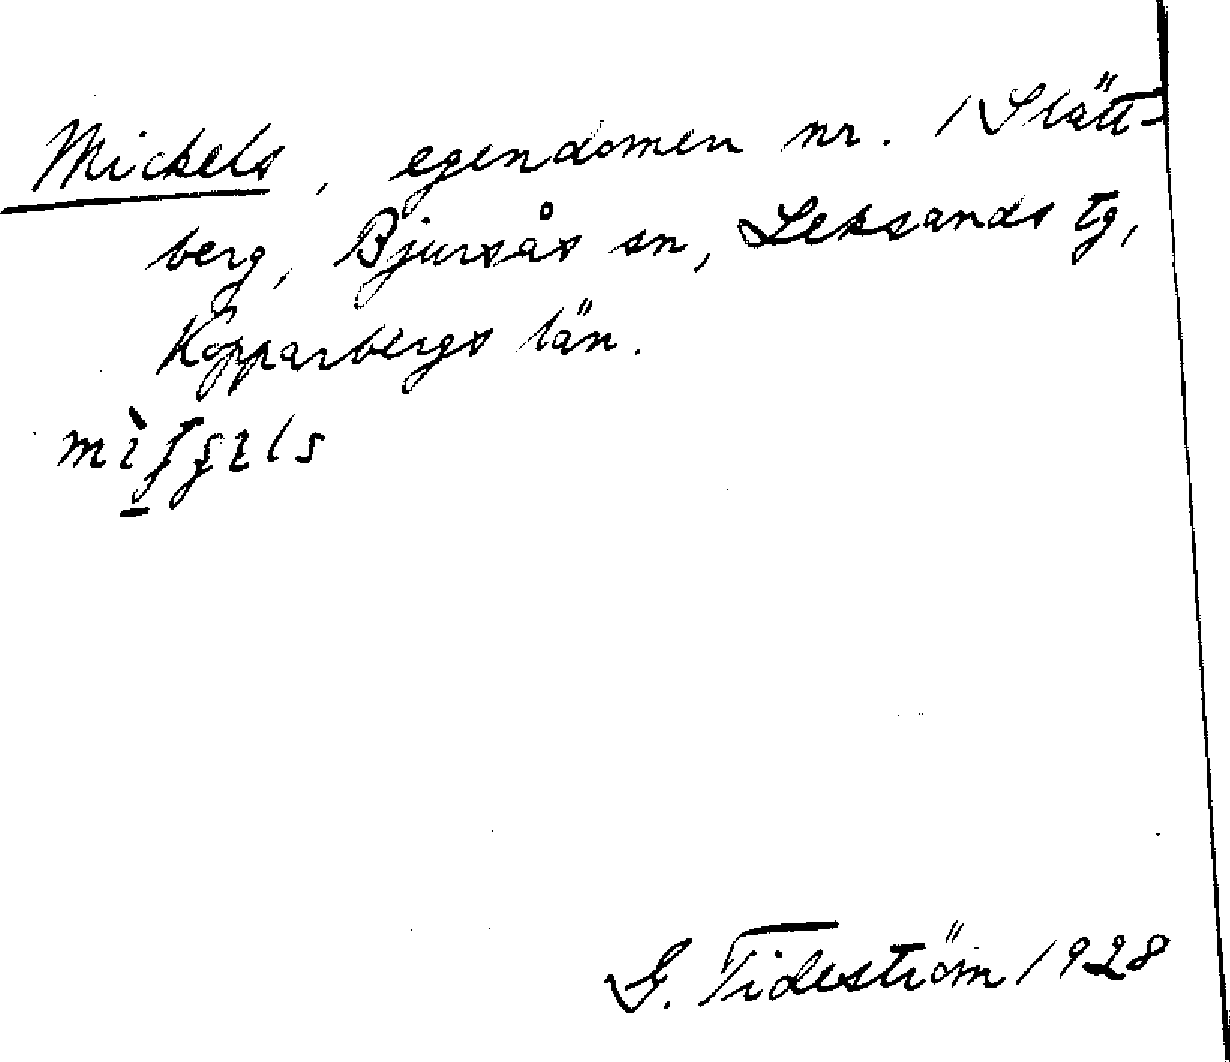 Mickels, egendomen nr. 1 Slätt-
berg, Bjursås sn, Leksands tg,
Kopparbergs län.
G. Tideström 1928